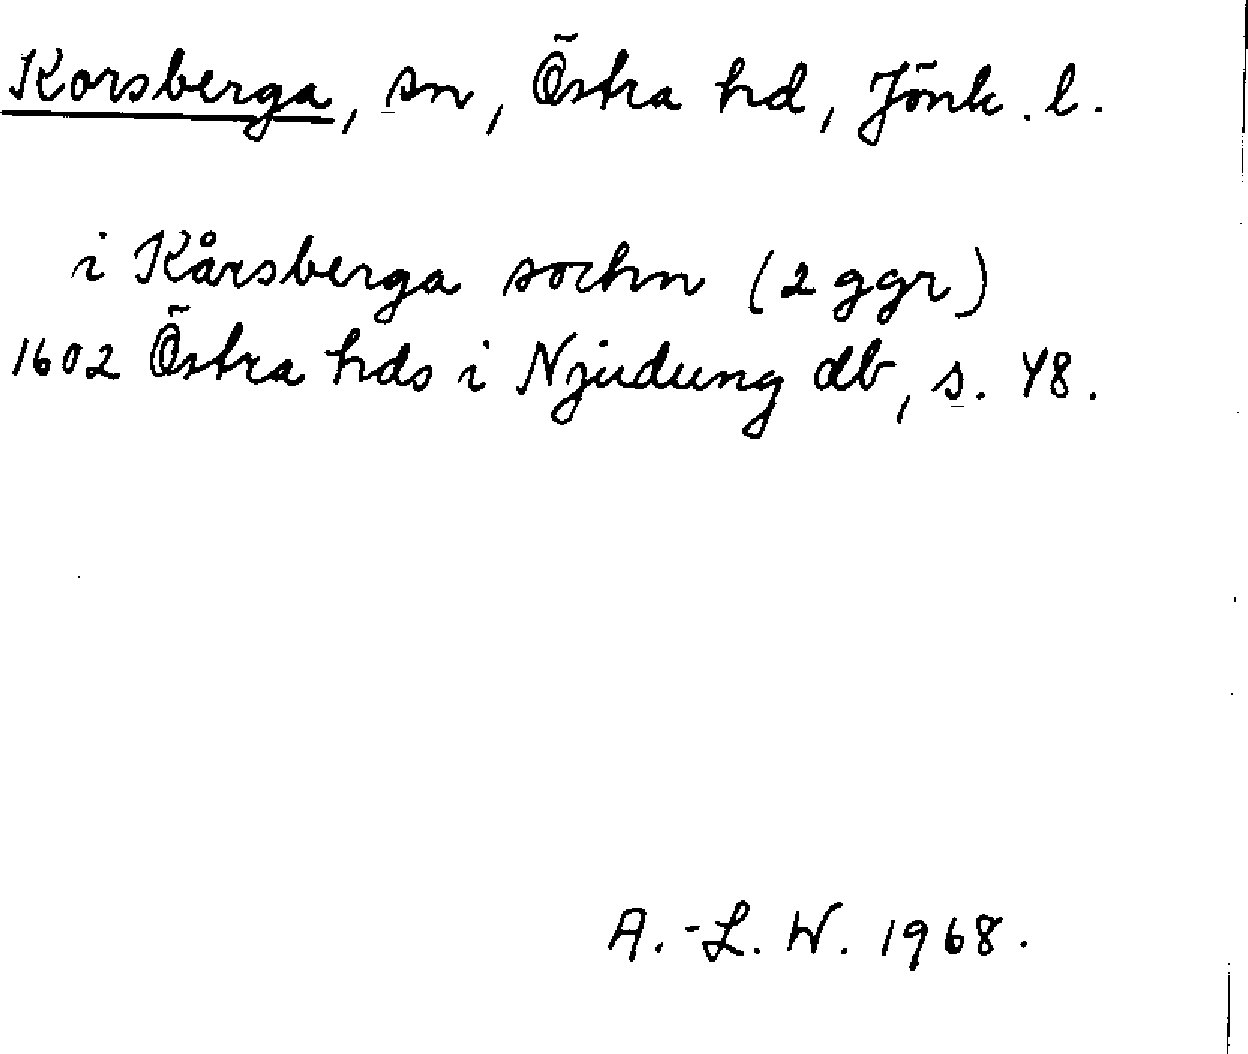 Korsberga, sn, Östra hd, Jönk. l.
i Kårsberga sochn (2 ggr)
1602 Östra hds i Njudung db, s. 48.
A.-L. W. 1968.